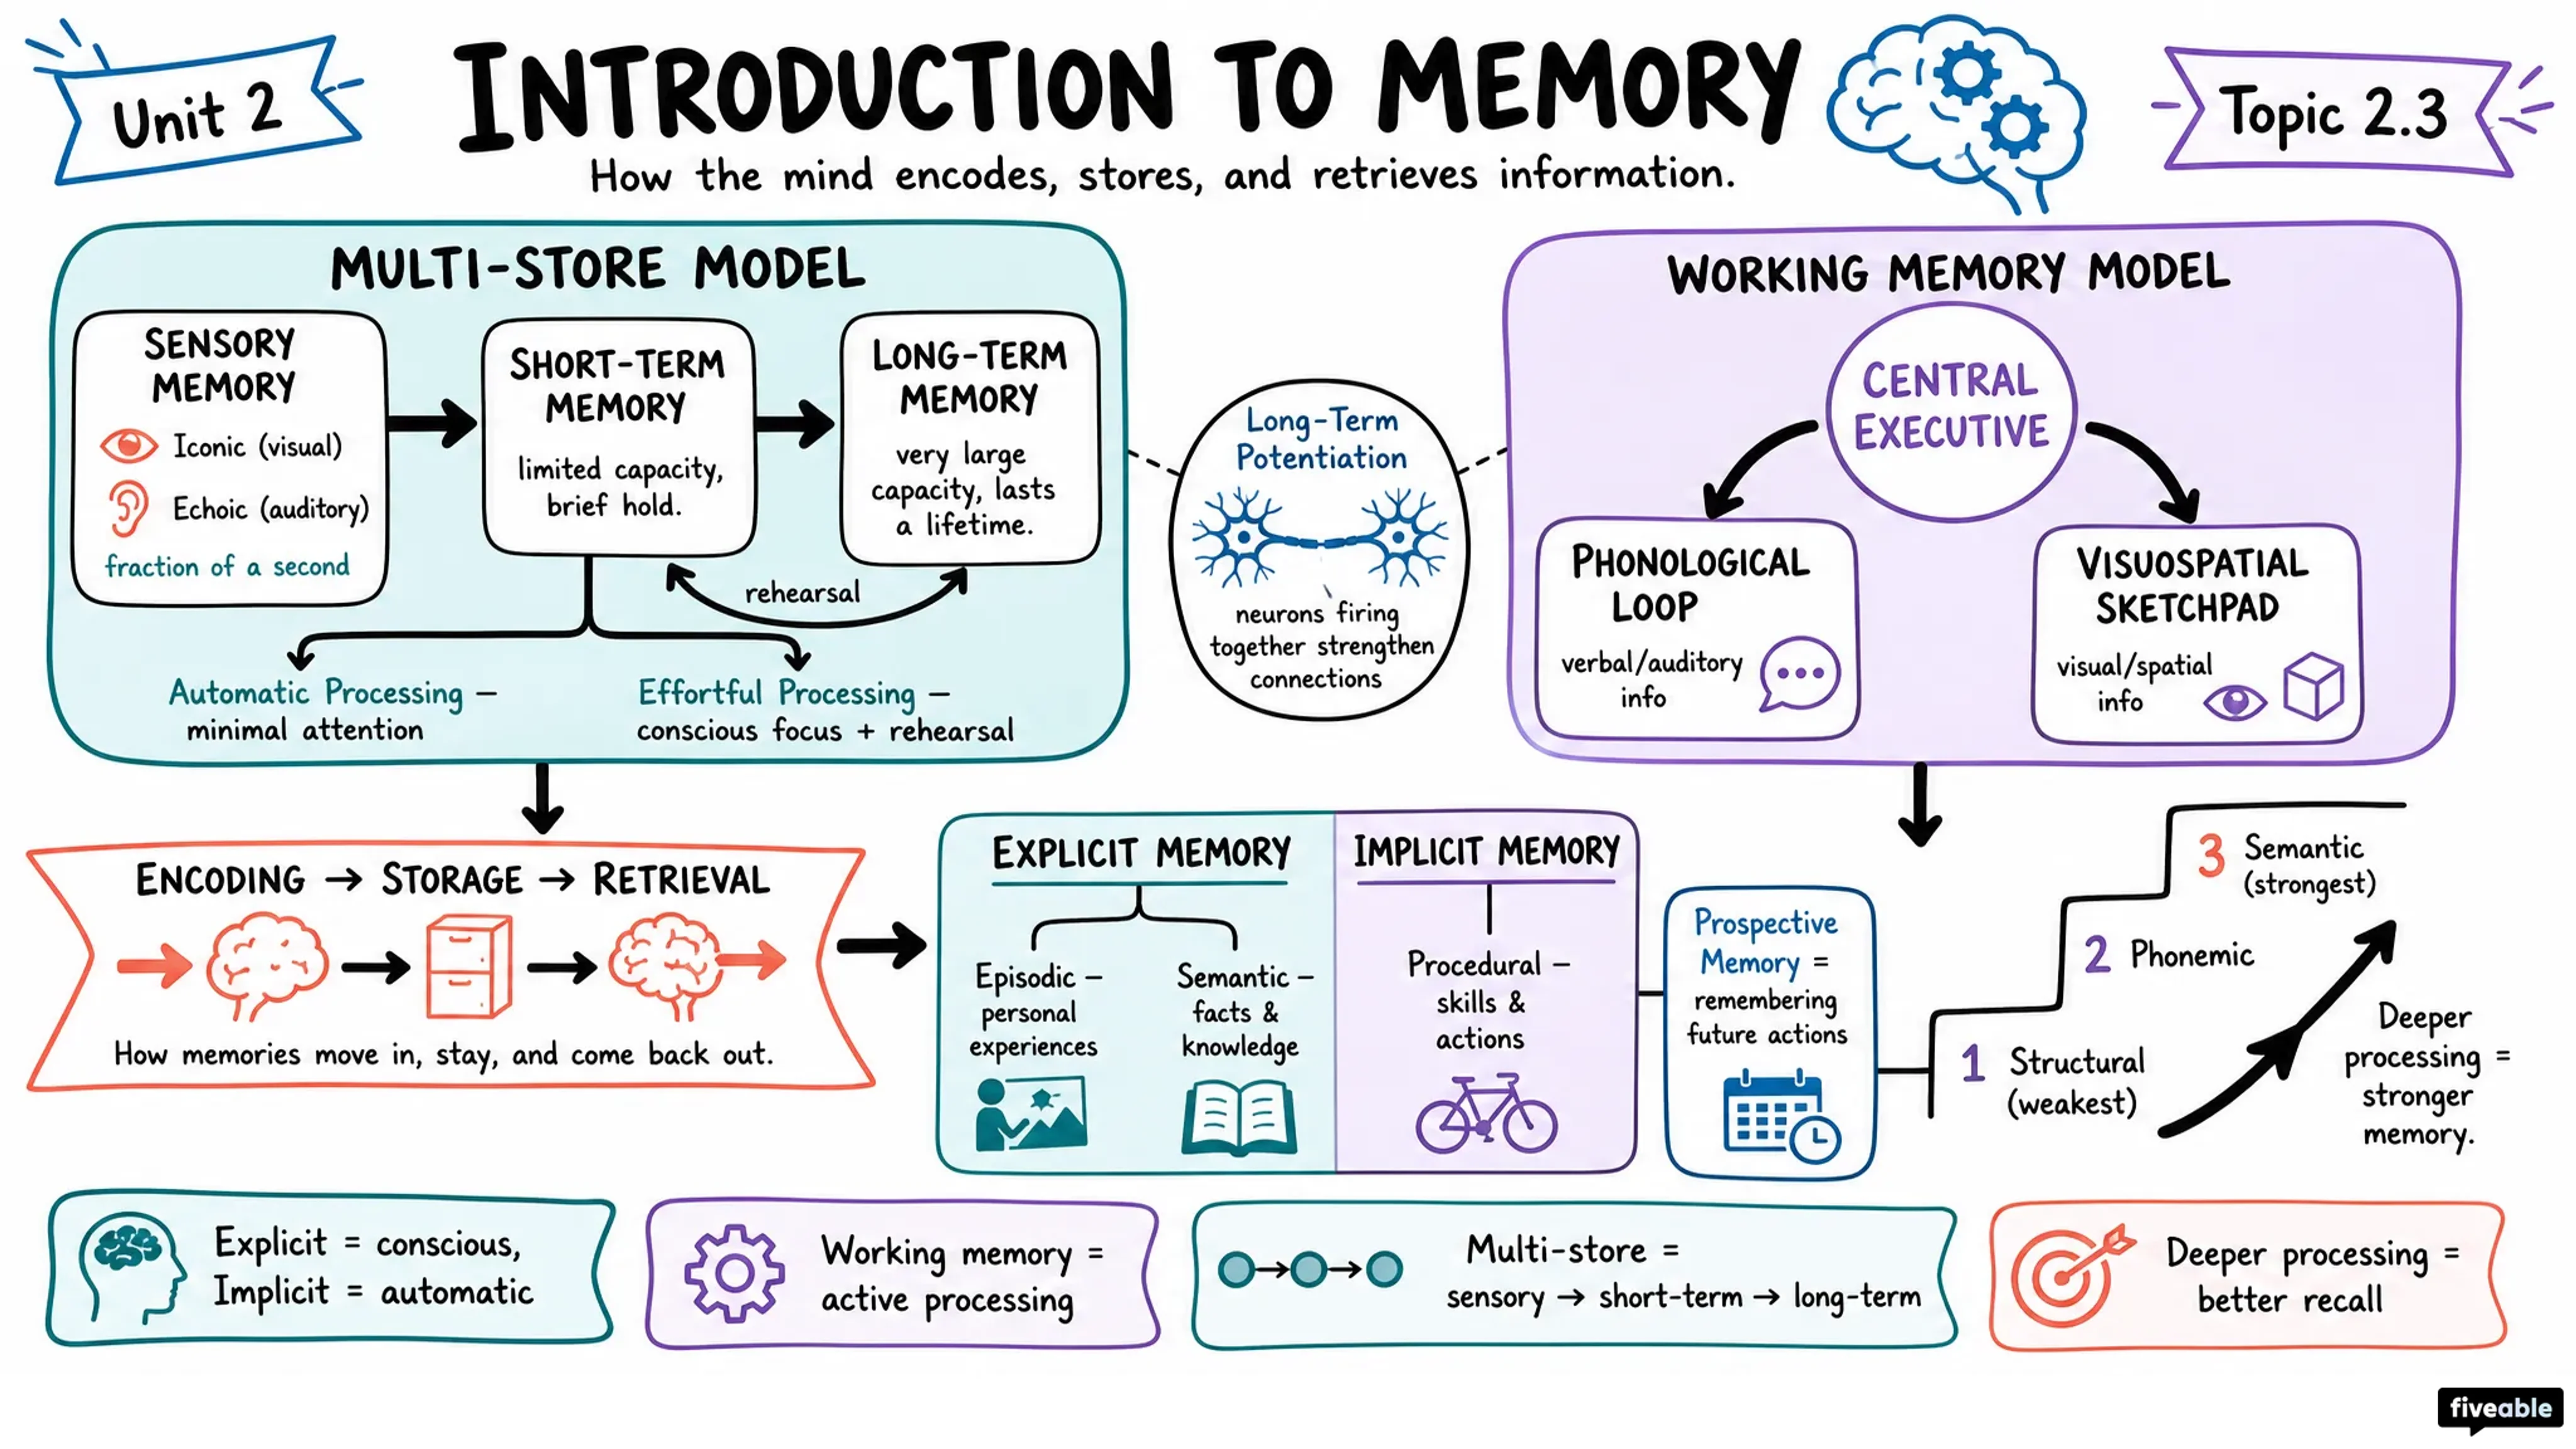 Unit 2
INTRODUCTION TO MEMORY
How the mind encodes, stores, and retrieves information.
Topic 2.3
MULTI-STORE MODEL
SENSORY
MEMORY
Iconic (visual)
Echoic (auditory)
fraction of a second
SHORT-TERM
MEMORY
limited capacity,
brief hold.
LONG-TERM
MEMORY
very large
capacity, lasts
a lifetime.
rehearsal
Automatic Processing –
minimal attention
Effortful Processing –
conscious focus + rehearsal
Long-Term
Potentiation
neurons firing
together strengthen
connections
WORKING MEMORY MODEL
CENTRAL
EXECUTIVE
PHONOLOGICAL
LOOP
verbal/auditory
info
VISUOSPATIAL
SKETCHPAD
visual/spatial
info
ENCODING → STORAGE → RETRIEVAL
How memories move in, stay, and come back out.
EXPLICIT MEMORY
Episodic –
personal
experiences
Semantic –
facts &
knowledge
IMPLICIT MEMORY
Procedural –
skills &
actions
Prospective
Memory =
remembering
future actions
3 Semantic
(strongest)
2 Phonemic
1 Structural
(weakest)
Deeper
processing =
stronger
memory.
Explicit = conscious,
Implicit = automatic
Working memory =
active processing
Multi-store =
sensory → short-term → long-term
Deeper processing =
better recall
fiveable